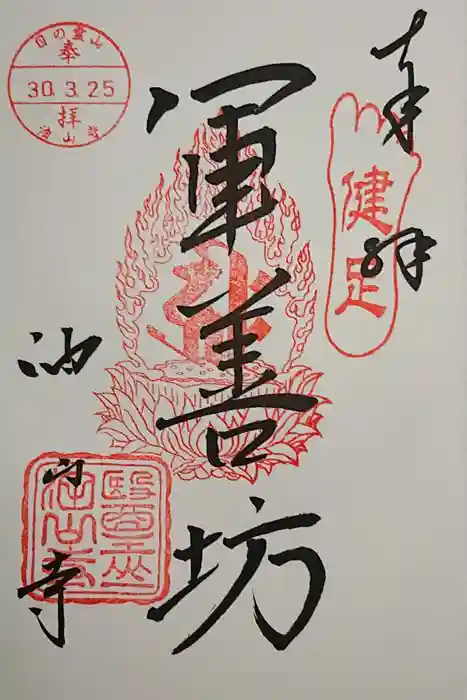 奉拝
健足
軍善坊
油山寺
目の靈山
奉
30.3.25
拝
油山寺
醫王山
油山寺